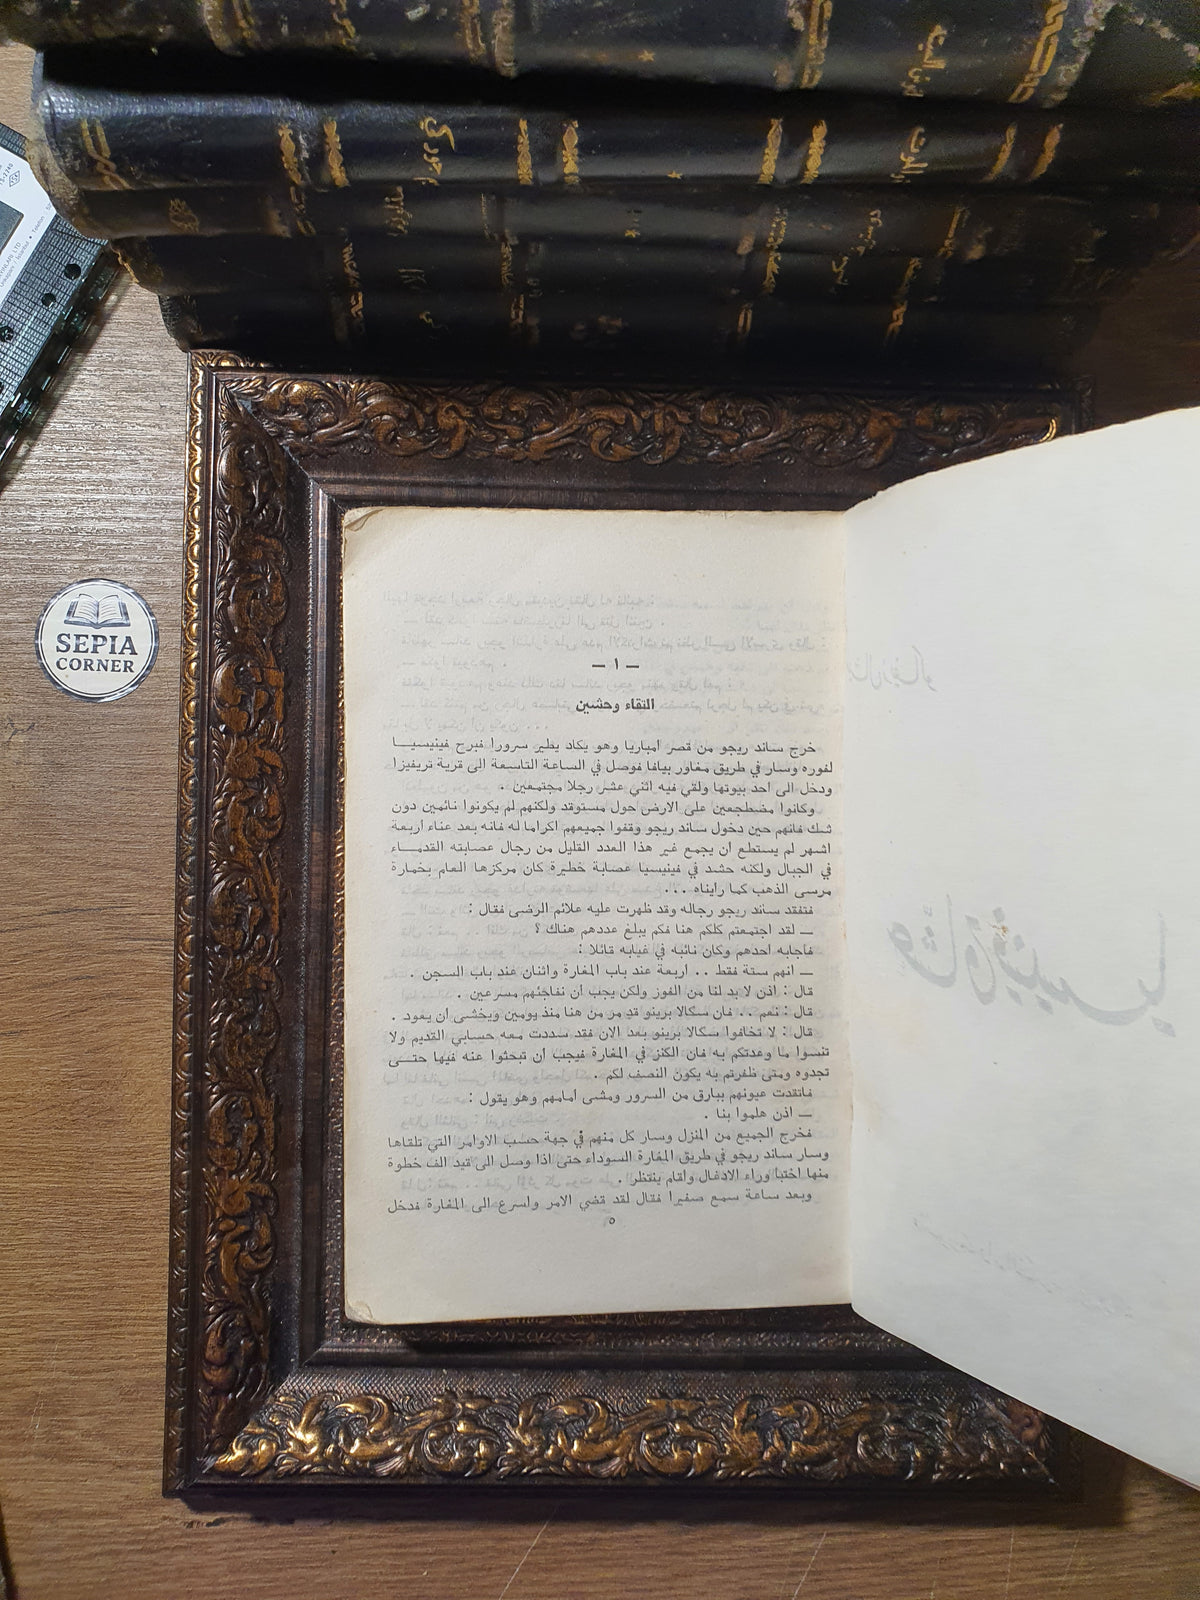 SEPIA
CORNER
— ١ —
التقاء وحشين
خرج ساند ريجو من قصر امباريا وهو يكاد يطير سرورا فبرح فينيسيـــا
لفوره وسار في طريق مغاور بيافا فوصل في الساعة التاسعة إلى قرية تريفيزا
ودخل الى احد بيوتها ولقي فيه اثني عشر رجلا مجتمعين .
وكانوا مضطجعين على الارض حول مستوقد ولكنهم لم يكونوا نائمين دون
شك فانهم حين دخول ساند ريجو وقفوا جميعهم اكراما له فانه بعد عناء اربعة
اشهر لم يستطع ان يجمع غير هذا العدد القليل من رجال عصابته القدمـــاء
في الجبال ولكنه حشد في فينيسيا عصابة خطيرة كان مركزها العام بخمارة
مرسى الذهب كما رايناه . . .
فتفقد ساند ريجو رجاله وقد ظهرت عليه علائم الرضى فقال :
— لقد اجتمعتم كلكم هنا فكم يبلغ عددهم هناك ؟
فاجابه احدهم وكان نائبه في غيابه قائلا :
— انهم ستة فقط . . اربعة عند باب المغارة واثنان عند باب السجن .
قال : اذن لا بد لنا من الفوز ولكن يجب أن نفاجئهم مسرعين .
قال : نعم . . فان سكالا برينو قد مر من هنا منذ يومين ويخشى أن يعود .
قال : لا تخافوا سكالا برينو بعد الان فقد سددت معه حسابي القديم ولا
تنسوا ما وعدتكم به فان الكنز في المغارة فيجب ان تبحثوا عنه فيها حتـــى
تجدوه ومتى ظفرتم به يكون النصف لكم .
فاتقدت عيونهم ببارق من السرور ومشى امامهم وهو يقول :
— اذن هلموا بنا .
فخرج الجميع من المنزل وسار كل منهم في جهة حسب الاوامر التي تلقاها
وسار ساند ريجو في طريق المغارة السوداء حتى اذا وصل الى قيد الف خطوة
منها اختبأ وراء الادغال وأقام ينتظر .
وبعد ساعة سمع صفيرا فقال لقد قضي الامر واسرع الى المغارة فدخل
٥